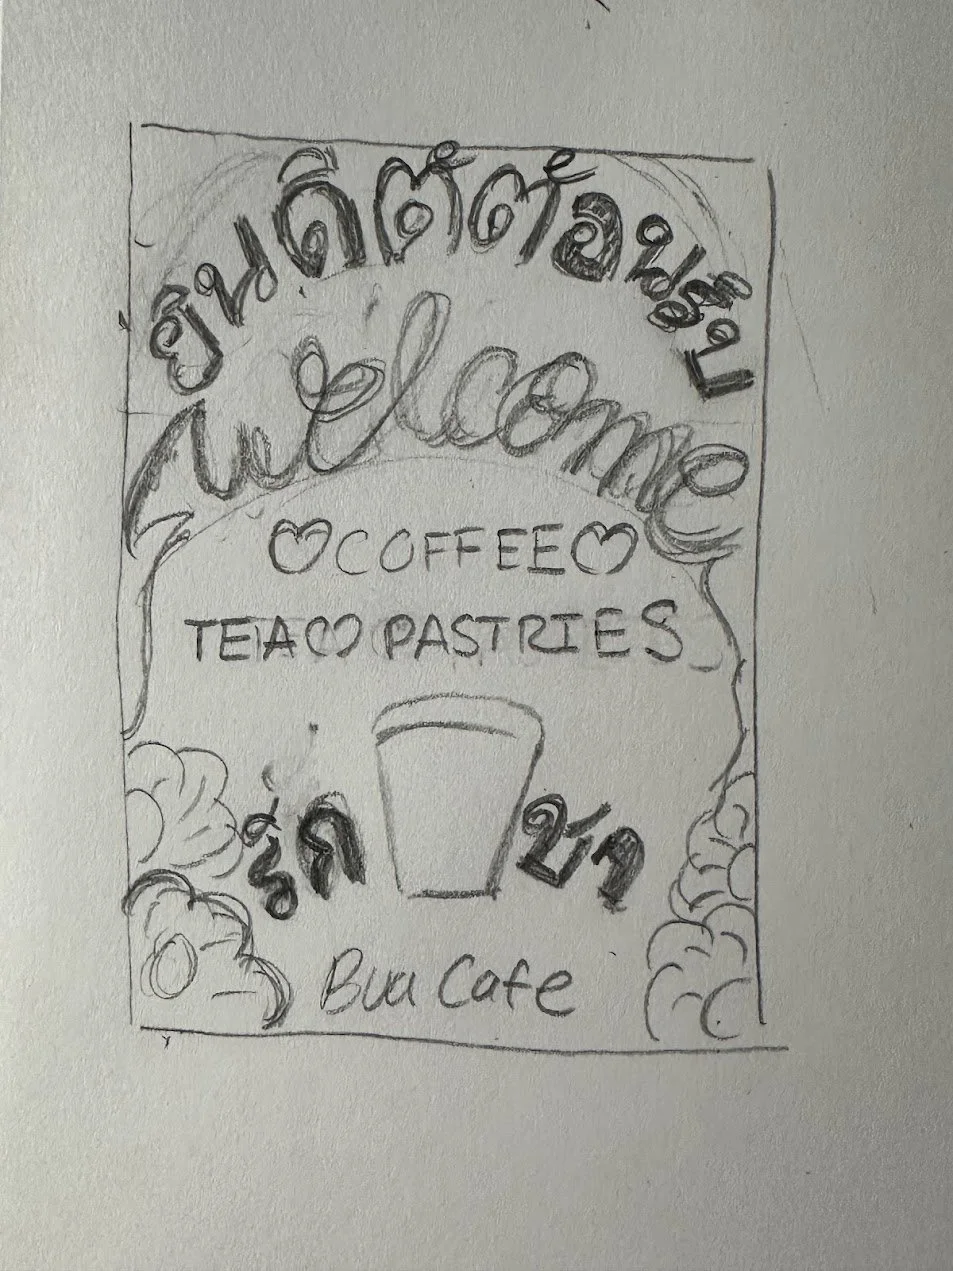 ยินดีต้ต้อนรับ
welcome
COFFEE
TEA PASTRIES
รัก ชา
Bua Cafe